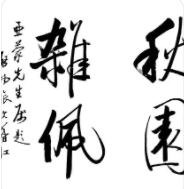 秋園
雜佩
亞蒙先生属題